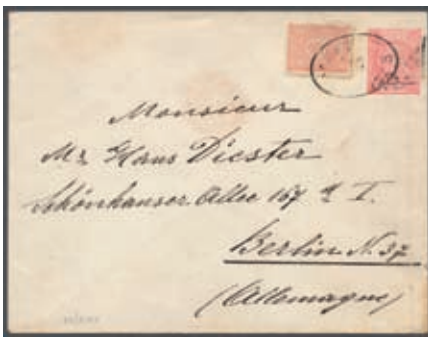 Monsieur
Mr Hans Diester
Schönhauser Allee 167 I.
Berlin N. 37
(Allemagne)